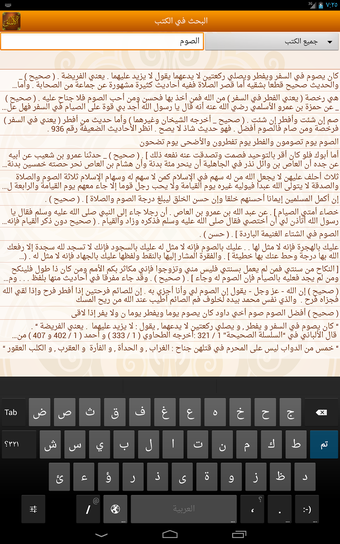 ٧:٢٥
البحث في الكتب
جميع الكتب
الصوم
كان يصوم في السفر ويفطر ويصلي ركعتين لا يدعهما يقول لا يزيد عليهما . يعني الفريضة . ( صحيح )
والحديث صحيح قطعا بشقيه أما قصر الصلاة ففيه أحاديث كثيرة مشهورة عن جماعة من الصحابة . وأما...
هي رخصة ( يعني الفطر في السفر ) من الله فمن أخذ بها فحسن ومن أحب الصوم فلا جناح عليه . ( صحيح )
_ عن حمزة بن عمرو الأسلمي رضي الله عنه أنه قال يا رسول الله أجد بي قوة على الصيام في السفر فهل عل...
صم إن شئت وأفطر إن شئت . ( صحيح _ أخرجه الشيخان وغيرهما ) وأما حديث من أفطر ( يعني في السفر )
فرخصة ومن صام فالصوم أفضل . فهو حديث شاذ لا يصح . انظر الأحاديث الضعيفة رقم 936 .
الصوم يوم تصومون والفطر يوم تفطرون والأضحى يوم تضحون
أما أبوك فلو كان أقر بالتوحيد فصمت وتصدقت عنه نفعه ذلك ] . ( صحيح ) _ حدثنا عمرو بن شعيب عن أبيه
عن جده أن العاص بن وائل نذر في الجاهلية أن ينحر مئة بدنة وأن هشام بن العاص نحر حصته خمسين بدنة...
ثلاث أحلف عليهن لا يجعل الله من له سهم في الإسلام كمن لا سهم له وسهام الإسلام ثلاثة الصوم والصلاة
والصدقة لا يتولى الله عبدا فيوليه غيره يوم القيامة ولا يحب رجل قوما إلا جاء معهم يوم القيامة والرابعة ل...
إن أكمل المسلمين إيمانا أحسنهم خلقا وإن حسن الخلق ليبلغ درجة الصوم والصلاة ] . ( صحيح ) .
خصاء أمتي الصيام ] . عن عبد الله بن عمرو بن العاص . أن رجلا جاء إلى النبي صلى الله عليه وسلم فقال يا
رسول الله أتأذن لي أن أختصي فقال صلى الله عليه وسلم فذكره وزاد والقيام . ( صحيح دون ذكر القيام فإنه...
الصوم في الشتاء الغنيمة الباردة ] . ( حسن ) .
عليك بالهجرة فإنه لا مثل لها . . عليك بالصوم فإنه لا مثل له عليك بالسجود فإنك لا تسجد لله سجدة إلا رفعك
الله بها درجة وحط عنك بها خطيئة ] . والفقرة المشار إليها بالنقط ولفظها عليك بالجهاد فإنه لا مثل له . (...
] النكاح من سنتي فمن لم يعمل بسنتي فليس مني وتزوجوا فإني مكاثر بكم الأمم ومن كان ذا طول فلينكح
ومن لم يجد فعليه بالصيام فإن الصوم له وجاء ] . ( صحيح ) . وقد جاء مفرقا في أحاديث منها بلفظ . . . وم...
( صحيح ) إن الله - عز وجل - يقول إن الصوم لي وأنا أجزي به . إن للصائم فرحتين إذا أفطر فرح وإذا لقي الله
فجزاه فرح . والذي نفس محمد بيده لخلوف فم الصائم أطيب عند الله من ريح المسك
( صحيح ) أفضل الصوم صوم أخي داود كان يصوم يوما ويفطر يوما ن ولا يفر إذا لاقى
" كان يصوم في السفر و يفطر , و يصلي ركعتين لا يدعهما , يقول : لا يزيد عليهما . يعني الفريضة " .
قال الألباني في "السلسلة الصحيحة" 1 / 321 :أخرجه الطحاوي ( 1 / 333 ) و أحمد ( 1 / 402 و 407 ) من...
" خمس من الدواب ليس على المحرم في قتلهن جناح : الغراب , و الحدأة , و الفأرة و العقرب , و الكلب العقور "
ض ص ق ث ف غ ع ه خ ح ج
Tab
ش س ي ب ل ا ت ن م ك ط
تم
؟١٢٣
ئ ء ؤ ر ى ة و ز ظ د
/ @
العربية
، . :-)